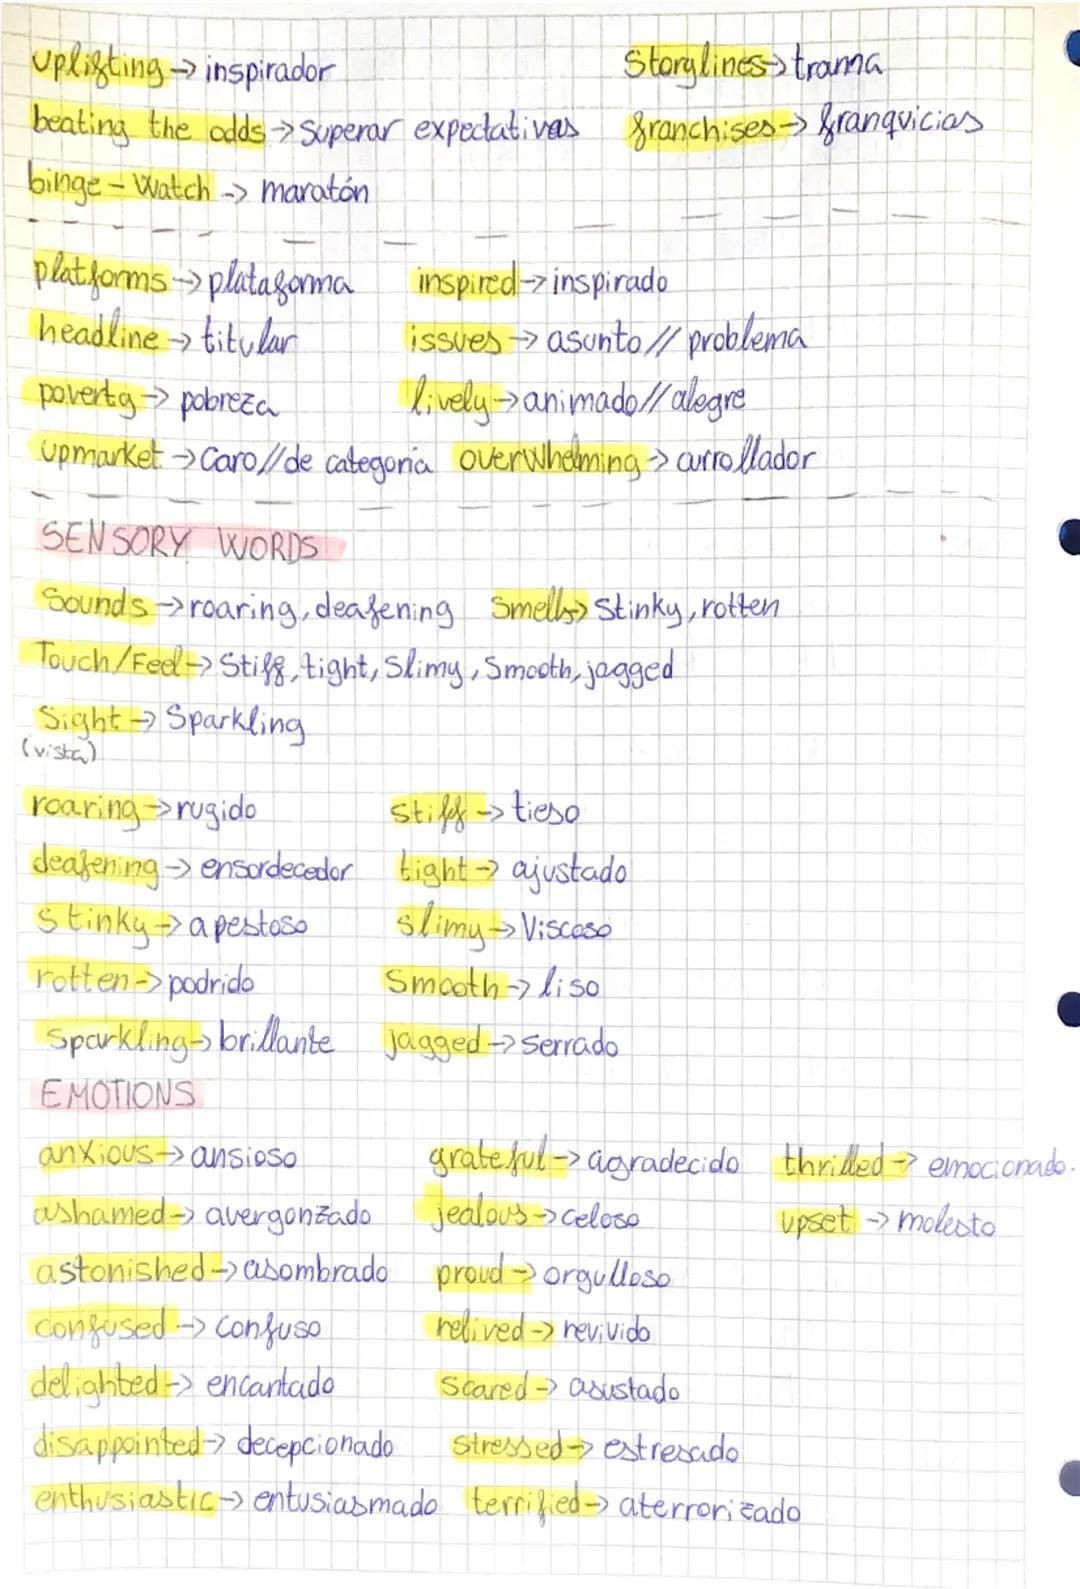 uplifting → inspirador storylines → trama
beating the odds → superar expectativas franchises → franquicias
binge - Watch → maratón
platforms → plataforma inspired → inspirado
headline → titular issues → asunto // problema
poverty → pobreza lively → animado // alegre
upmarket → Caro // de categoria overwhelming → arrollador
SENSORY WORDS
Sounds → roaring, deafening Smells → Stinky, rotten
Touch/Feel → Stiff, tight, Slimy, Smooth, jagged
Sight → Sparkling
(vista)
roaring → rugido stiff → tieso
deafening → ensordecedor tight → ajustado
stinky → apestoso slimy → Viscoso
rotten → podrido Smooth → liso
Sparkling → brillante jagged → Serrado
EMOTIONS
anxious → ansioso grateful → agradecido thrilled → emocionado.
ashamed → avergonzado jealous → celoso upset → molesto
astonished → asombrado proud → orgulloso
confused → confuso relived → revivido
delighted → encantado scared → asustado
disappointed → decepcionado stressed → estresado
enthusiastic → entusiasmado terrified → aterrorizado